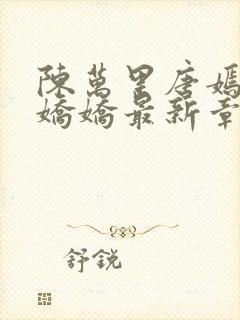 陳萬里唐嫣
嬌嬌最新章
舒銳